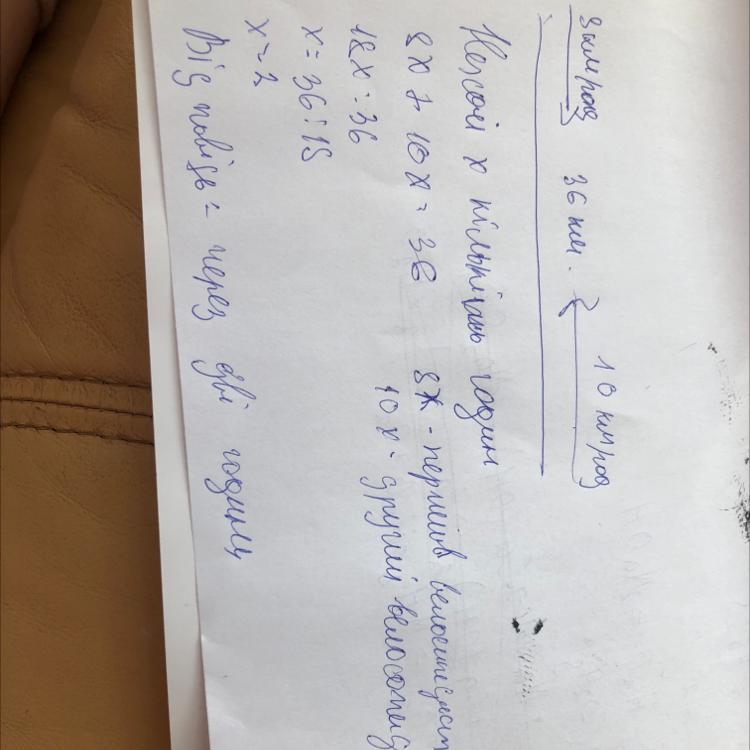 8 км/год 36 км. 10 км/год
Нехай х кількість годин
8х + 10х = 36 8х - перший велосипедист
18х = 36 10х - другий велосопед
х = 36 : 18
х = 2
Відповідь = через дві години